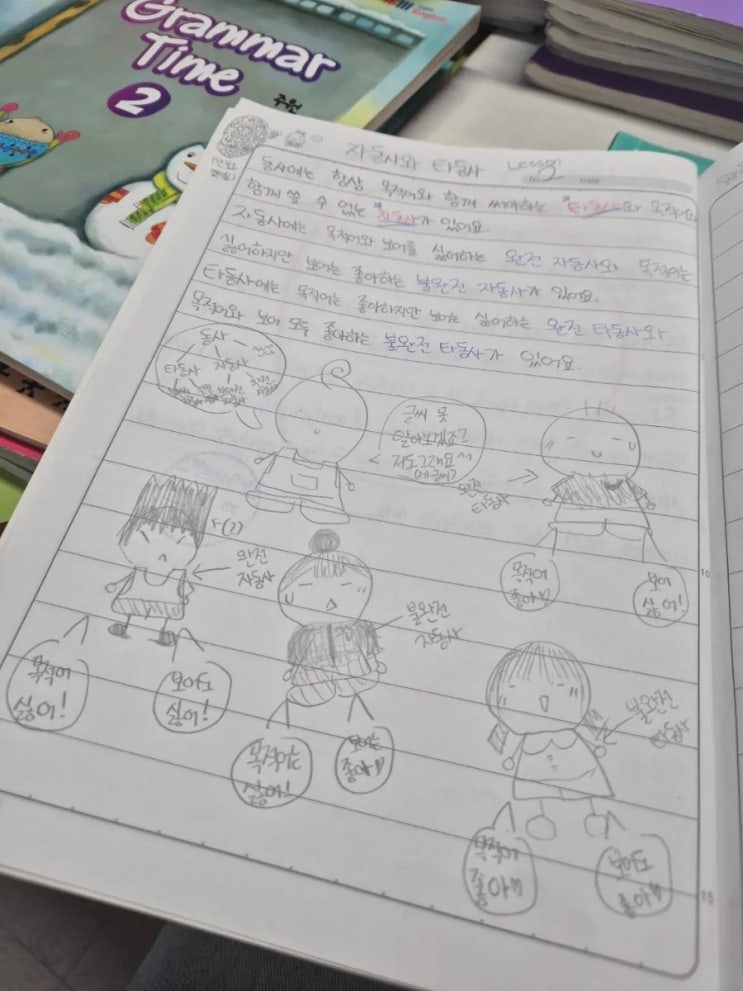 Grammar
Time
2
주원
자동사와 타동사 Lesson
동사에는 항상 목적어와 함께 써야하는 *타동사와 목적어와
함께 쓸 수 없는 *자동사가 있어요.
자동사에는 목적어와 보어를 싫어하는 완전 자동사와 목적어는
싫어하지만 보어는 좋아하는 불완전 자동사가 있어요.
타동사에는 목적어는 좋아하지만 보어는 싫어하는 완전 타동사와
목적어와 보어 모두 좋아하는 불완전 타동사가 있어요.
동사
타동사 자동사
글씨 못
알아보겠죠?
저도 그래요^^
완전
타동사
목적어
좋아♡
보어
싫어!
완전
자동사
목적어
싫어!
보어도
싫어!
불완전
자동사
목적어는
싫어!
보어는
좋아♡
불완전
타동사
목적어
좋아♡
보어도
좋아♡
10
15